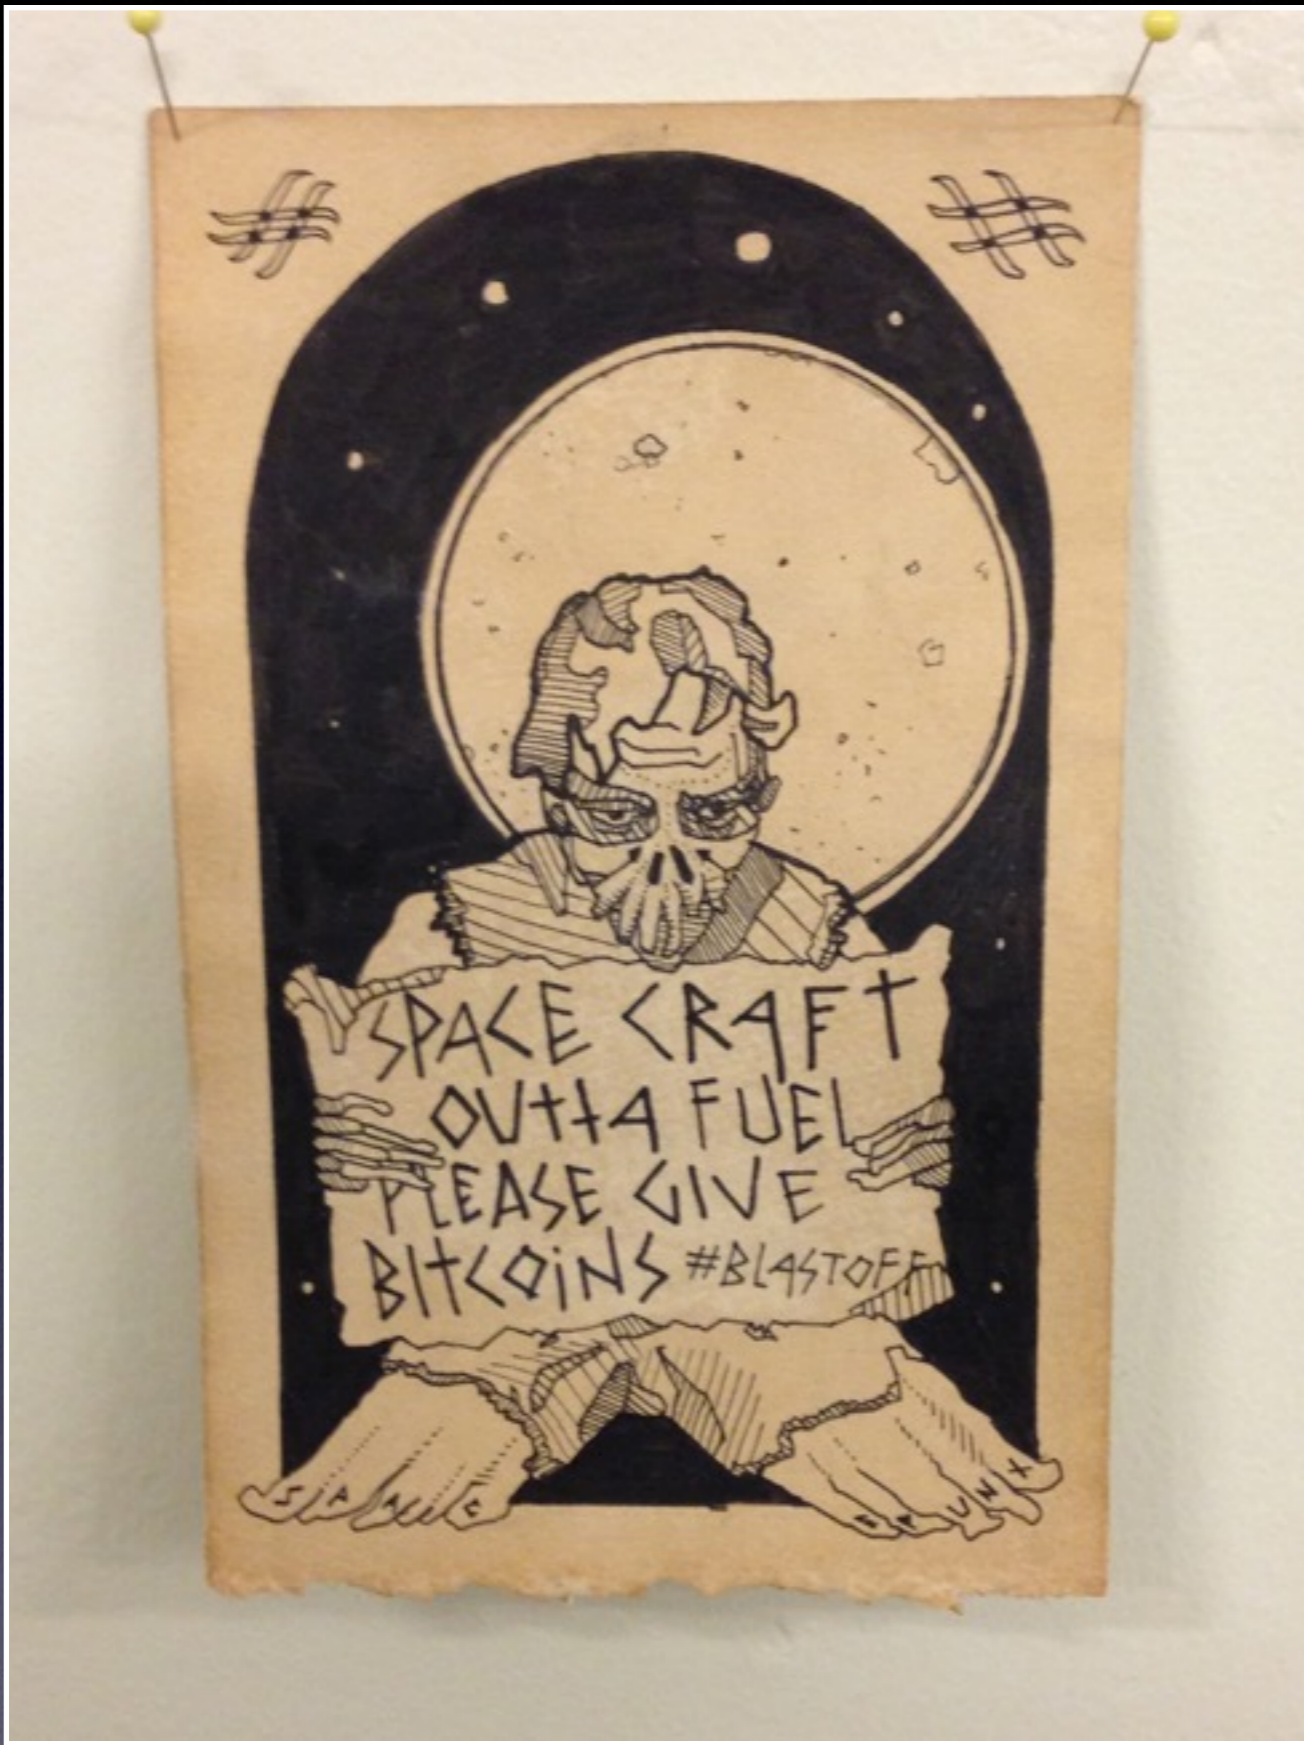 #
#
SPACE CRAFT
OUTTA FUEL
PLEASE GIVE
BITCOINS #BLASTOFF